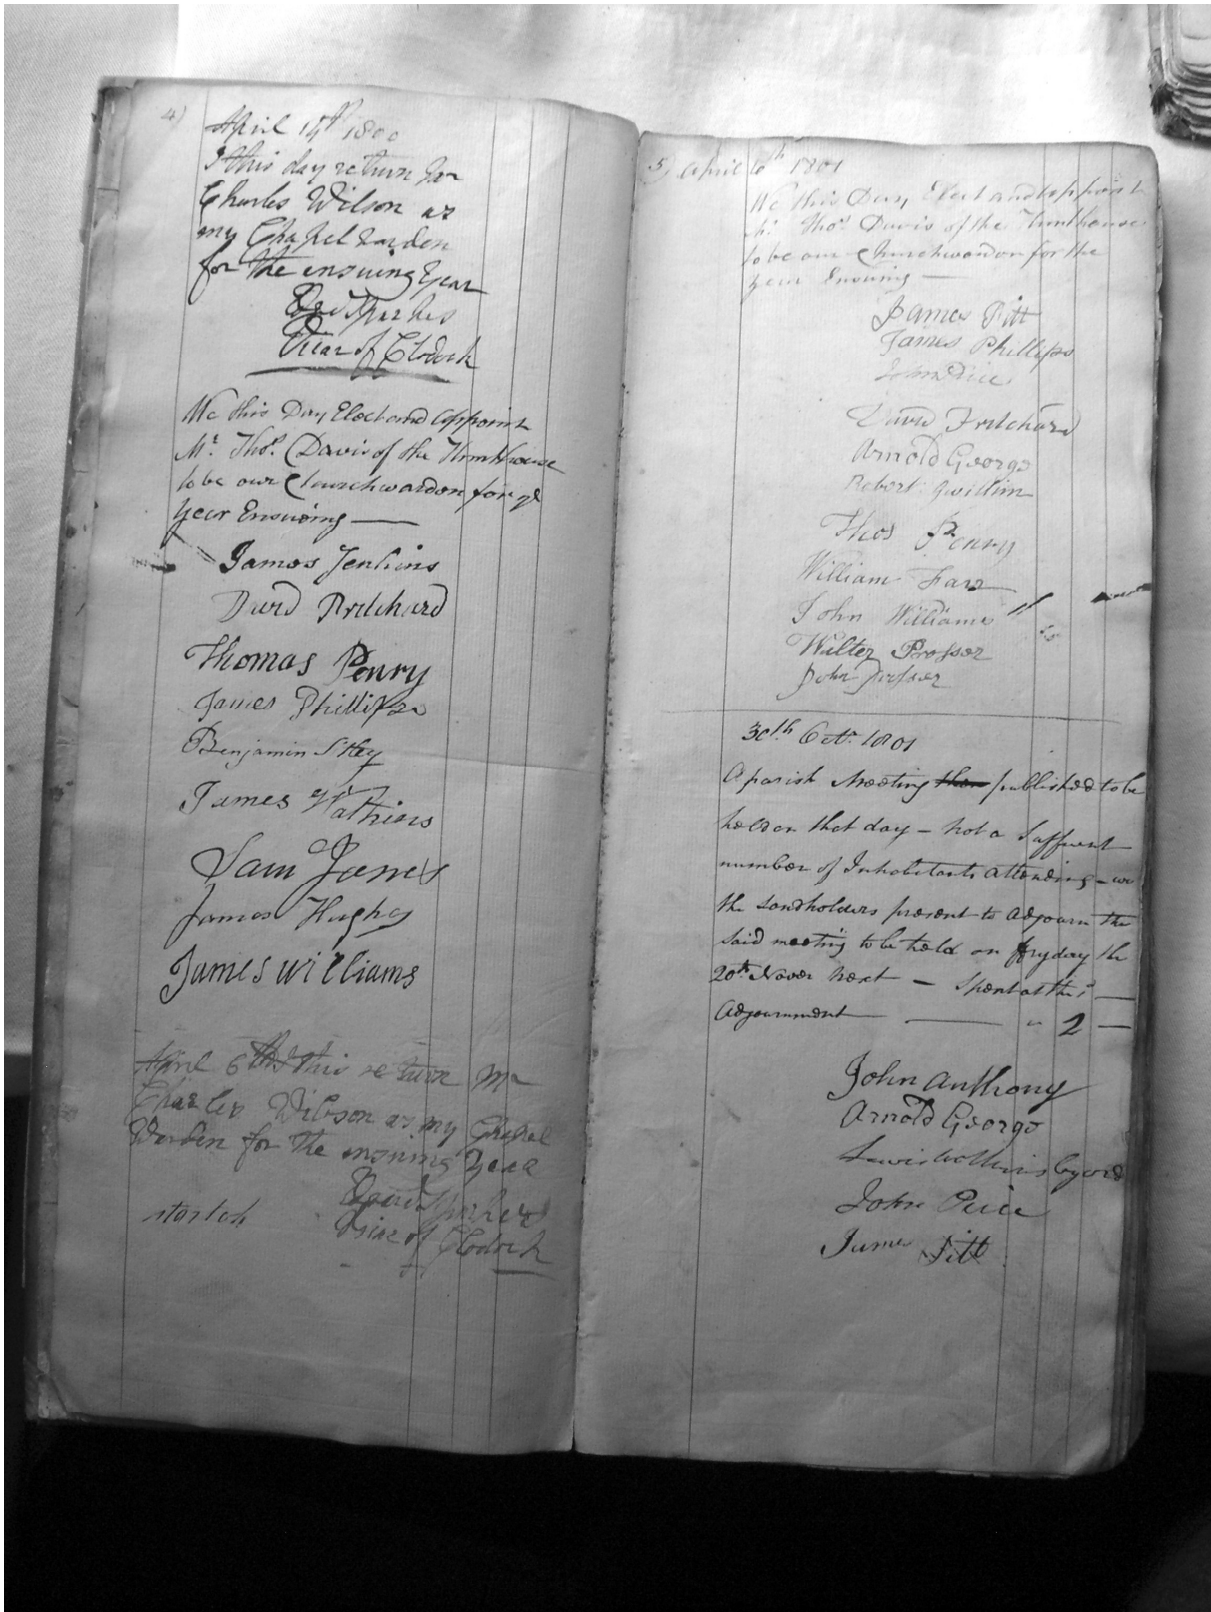 4)
April 14th 1800
I this day return Mr
Charles Wilson as
my Chapel warden
for the ensuing Year
Davd Parkes
Vicar of Clodock
We this Day Elect and appoint
Mr. Thos. Davis of the Hunthouse
to be our Churchwardon for ye
year Ensuing —
James Jenkins
David Pritchard
Thomas Penry
James Phillips
Benjamin
James Watkins
Sam Jones
James Hughes
James Williams
April 6th this return Mr
Charles Wilson as my Chapel
Warden for the ensuing Year
David Parkes
Vicar of Clodock
5) April 6th 1801
We this Day Elect and appoint
Mr. Thos. Davis of the Hunthouse
to be our Churchwardon for the
year Ensuing —
James Pitt
James Phillips
John Price
David Pritchard
Arnold George
Robert Gwillim
Thos Penry
William Farr
John Williams
Walter Prosser
John Prosser
30th Octr. 1801
A parish Meeting then published to be
held on that day - not a Suffient
number of Inhabitants attending - we
the Landholders present to adjourn the
said meeting to be held on fryday the
20th Novor Next — Spent at this —
Adjournment — " 2 —
John Anthony
Arnold George
Lewis Watkins by ord
John Price
James Pitt